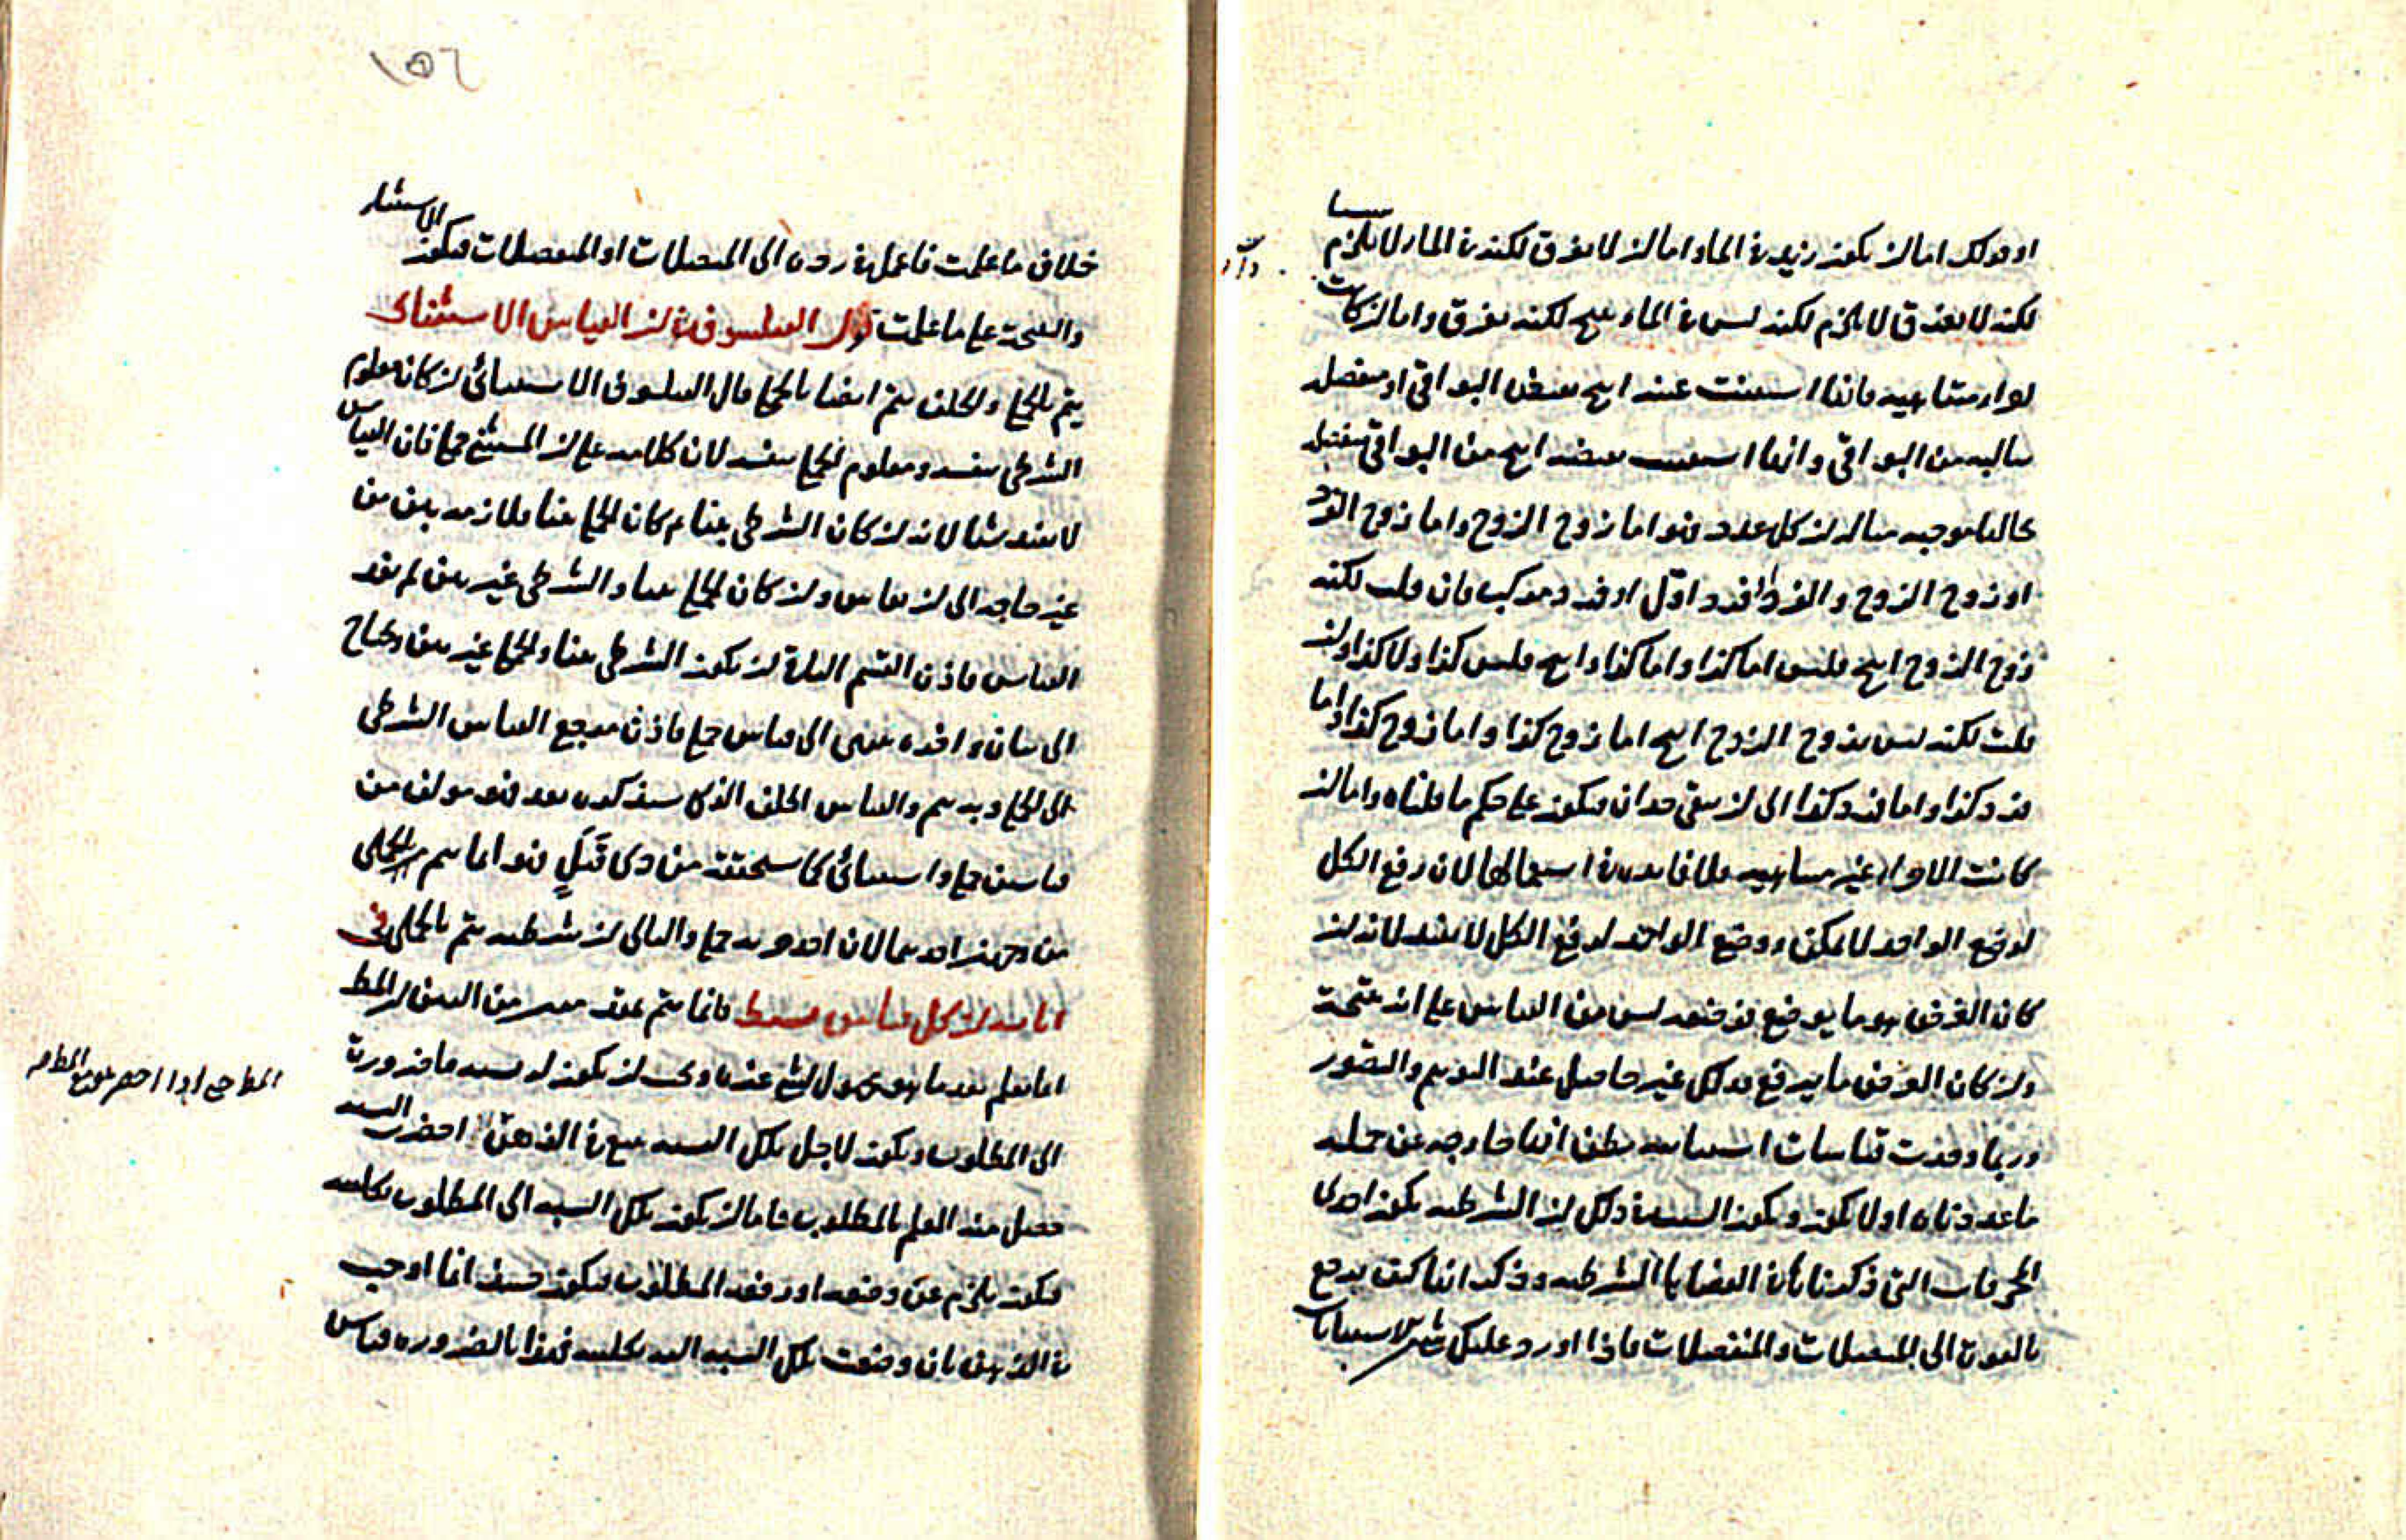 او قولك اما ان يكون زيد في الماء واما ان لا يغرق لكنه في الماء لا يلزم شيئا
لكنه لا يغرق لا يلزم لكنه ليس في الماء ينتج لكنه يغرق واما ان كانت
اجزاء متناهيه فانها استثنيت عينه انتج نقيض البواقي او منفصله
سالبه من البواقي وانها استثنيت نقيضه انتج من البواقي منفصله
بحالها موجبه مثاله ان كل عدد فهو اما زوج الزوج واما زوج الفرد
او زوج الزوج والفرد او فرد اول او فرد مركب فان قلت لكنه
زوج الزوج انتج فليس اما كذا واما كذا وانتج فليس كذا ولا كذا وان
قلت لكنه ليس بزوج الزوج انتج اما زوج كذا واما زوج كذا واما
فرد كذا واما فرد كذا الى ان يبقى حدان فيكون على حكم ما قلناه واما ان
كانت الاجزاء غير متناهيه فلا فايده في استعمالها لان رفع الكل
لوضع الواحد لا يمكن ووضع الواحد لرفع الكل لا يفيد لانه ان
كان الغرض هو ما يوضع فوضعه ليس من القياس على انه نتيجة
وان كان الغرض ما يرفع فذلك غير حاصل عند الوهم والتصور
وربما وقعت قياسات استثنائيه يظن انها خارجه عن جمله
ما عددناه او لا يكون ويكون السبب في ذلك ان الشرطيه يكون احدى
المحرفات التي ذكرناها في القضايا الشرطيه وذكر انها كيف يرجع
بالقوة الى المتصلات والمنفصلات فاذا اورد عليك مثل الاستثنايات
١٥٦
خلاف ما علمت فاعمل في رده الى المتصلات او المنفصلات فيكون الاستثناء
والنتيجة على ما علمت قول الفيلسوف في ان القياس الاستثنائي
يتم بالحملي والخلف يتم ايضا بالحملي قال الفيلسوف الاستثنائي ان كان معلوم
الشرطي بنفسه ومعلوم الحملي بنفسه لان كلامه على ان المستثنى حملي فان القياس
لا يفيد شيئا لانه ان كان الشرطي بينا ثم كان الحملي بينا فلازمه بين من
غير حاجه الى ان يقاس وان كان الحملي بينا والشرطي غير بين لم يفد
القياس فاذن القسم الباقي ان يكون الشرطي بينا والحملي غير بين ويحتاج
الى بيان واخره ينتهى الى قياس حملي فاذن مرجع القياس الشرطي
الى الحملي وبه يتم والقياس الخلف الذي سنذكره بعد فهو مولف من
قياسين حملي واستثنائي كما سنحققه من ذي قبل فهو انما يتم بالحملي
من وجهين احدهما لان احد جزئيه حملي والثاني ان شرطيه يتم بالحملي في
انا نبين ان كل قياس بسيط فانما يتم
اما نعلم بعد ما هو مجهول لشيء عندنا وى ان يكون له نسبه ما ضرورة
الى المطلوب ويكون لاجل تلك النسبه يقع في الذهن احضرت النسبه
حصل منه العلم بالمطلوب فاما ان يكون تلك النسبه الى المطلوب بكليته
فيكون يلزم عن وضعه او رفعه المطلوب فيكون حينئذ انما اوجب
في الذهن بان وضعت تلك النسبه اليه بكليته فهذا بالضروره قياس